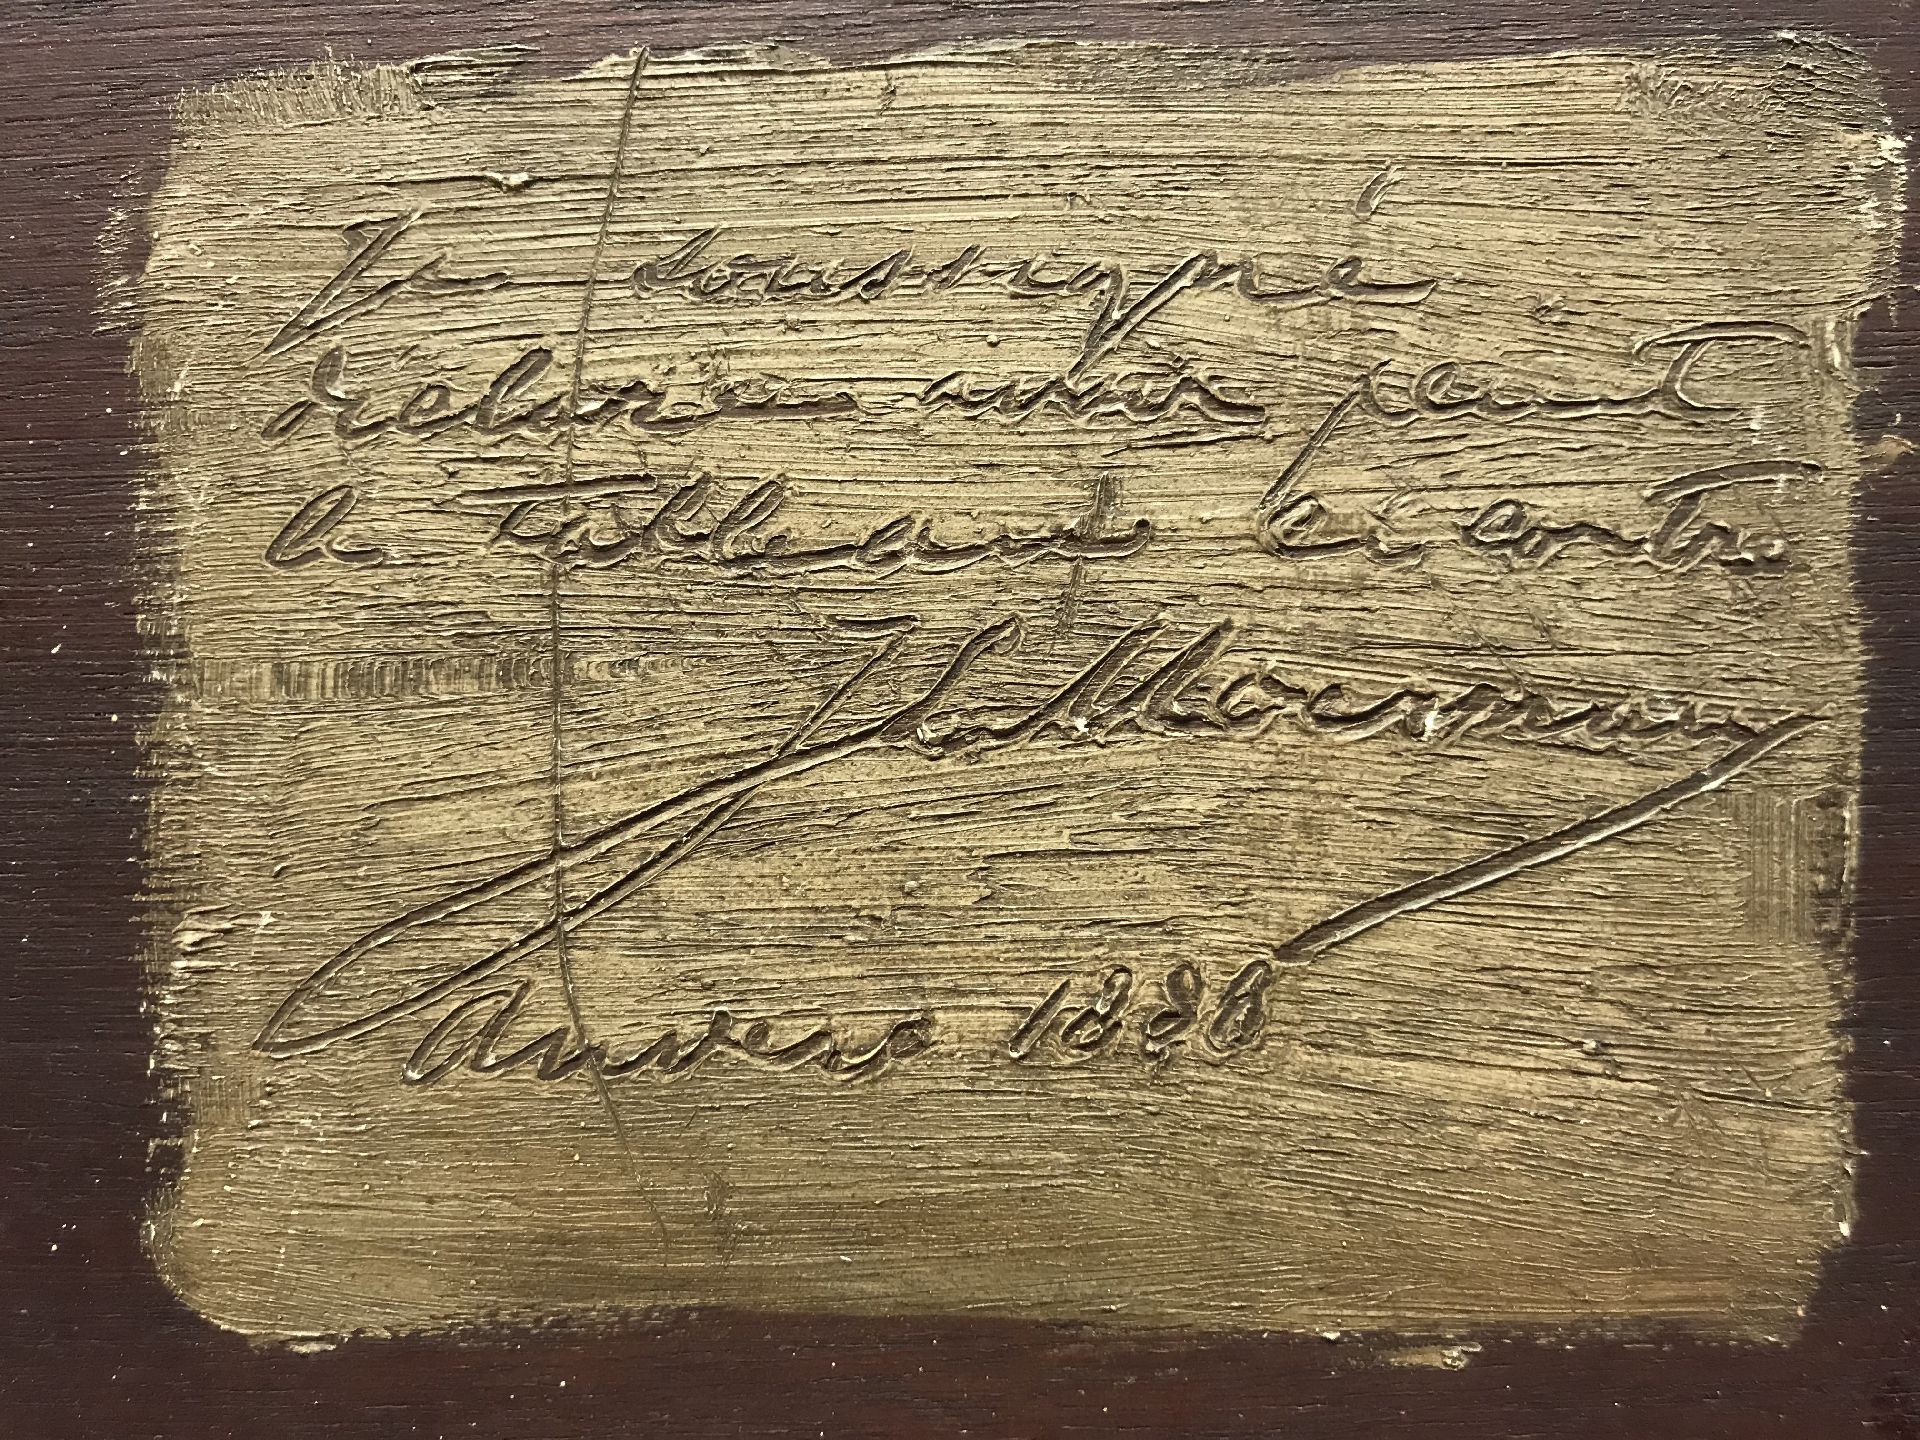 Je soussigné
déclare avoir peint
le tableau ci contre
J L Moerman
Anvers 1880